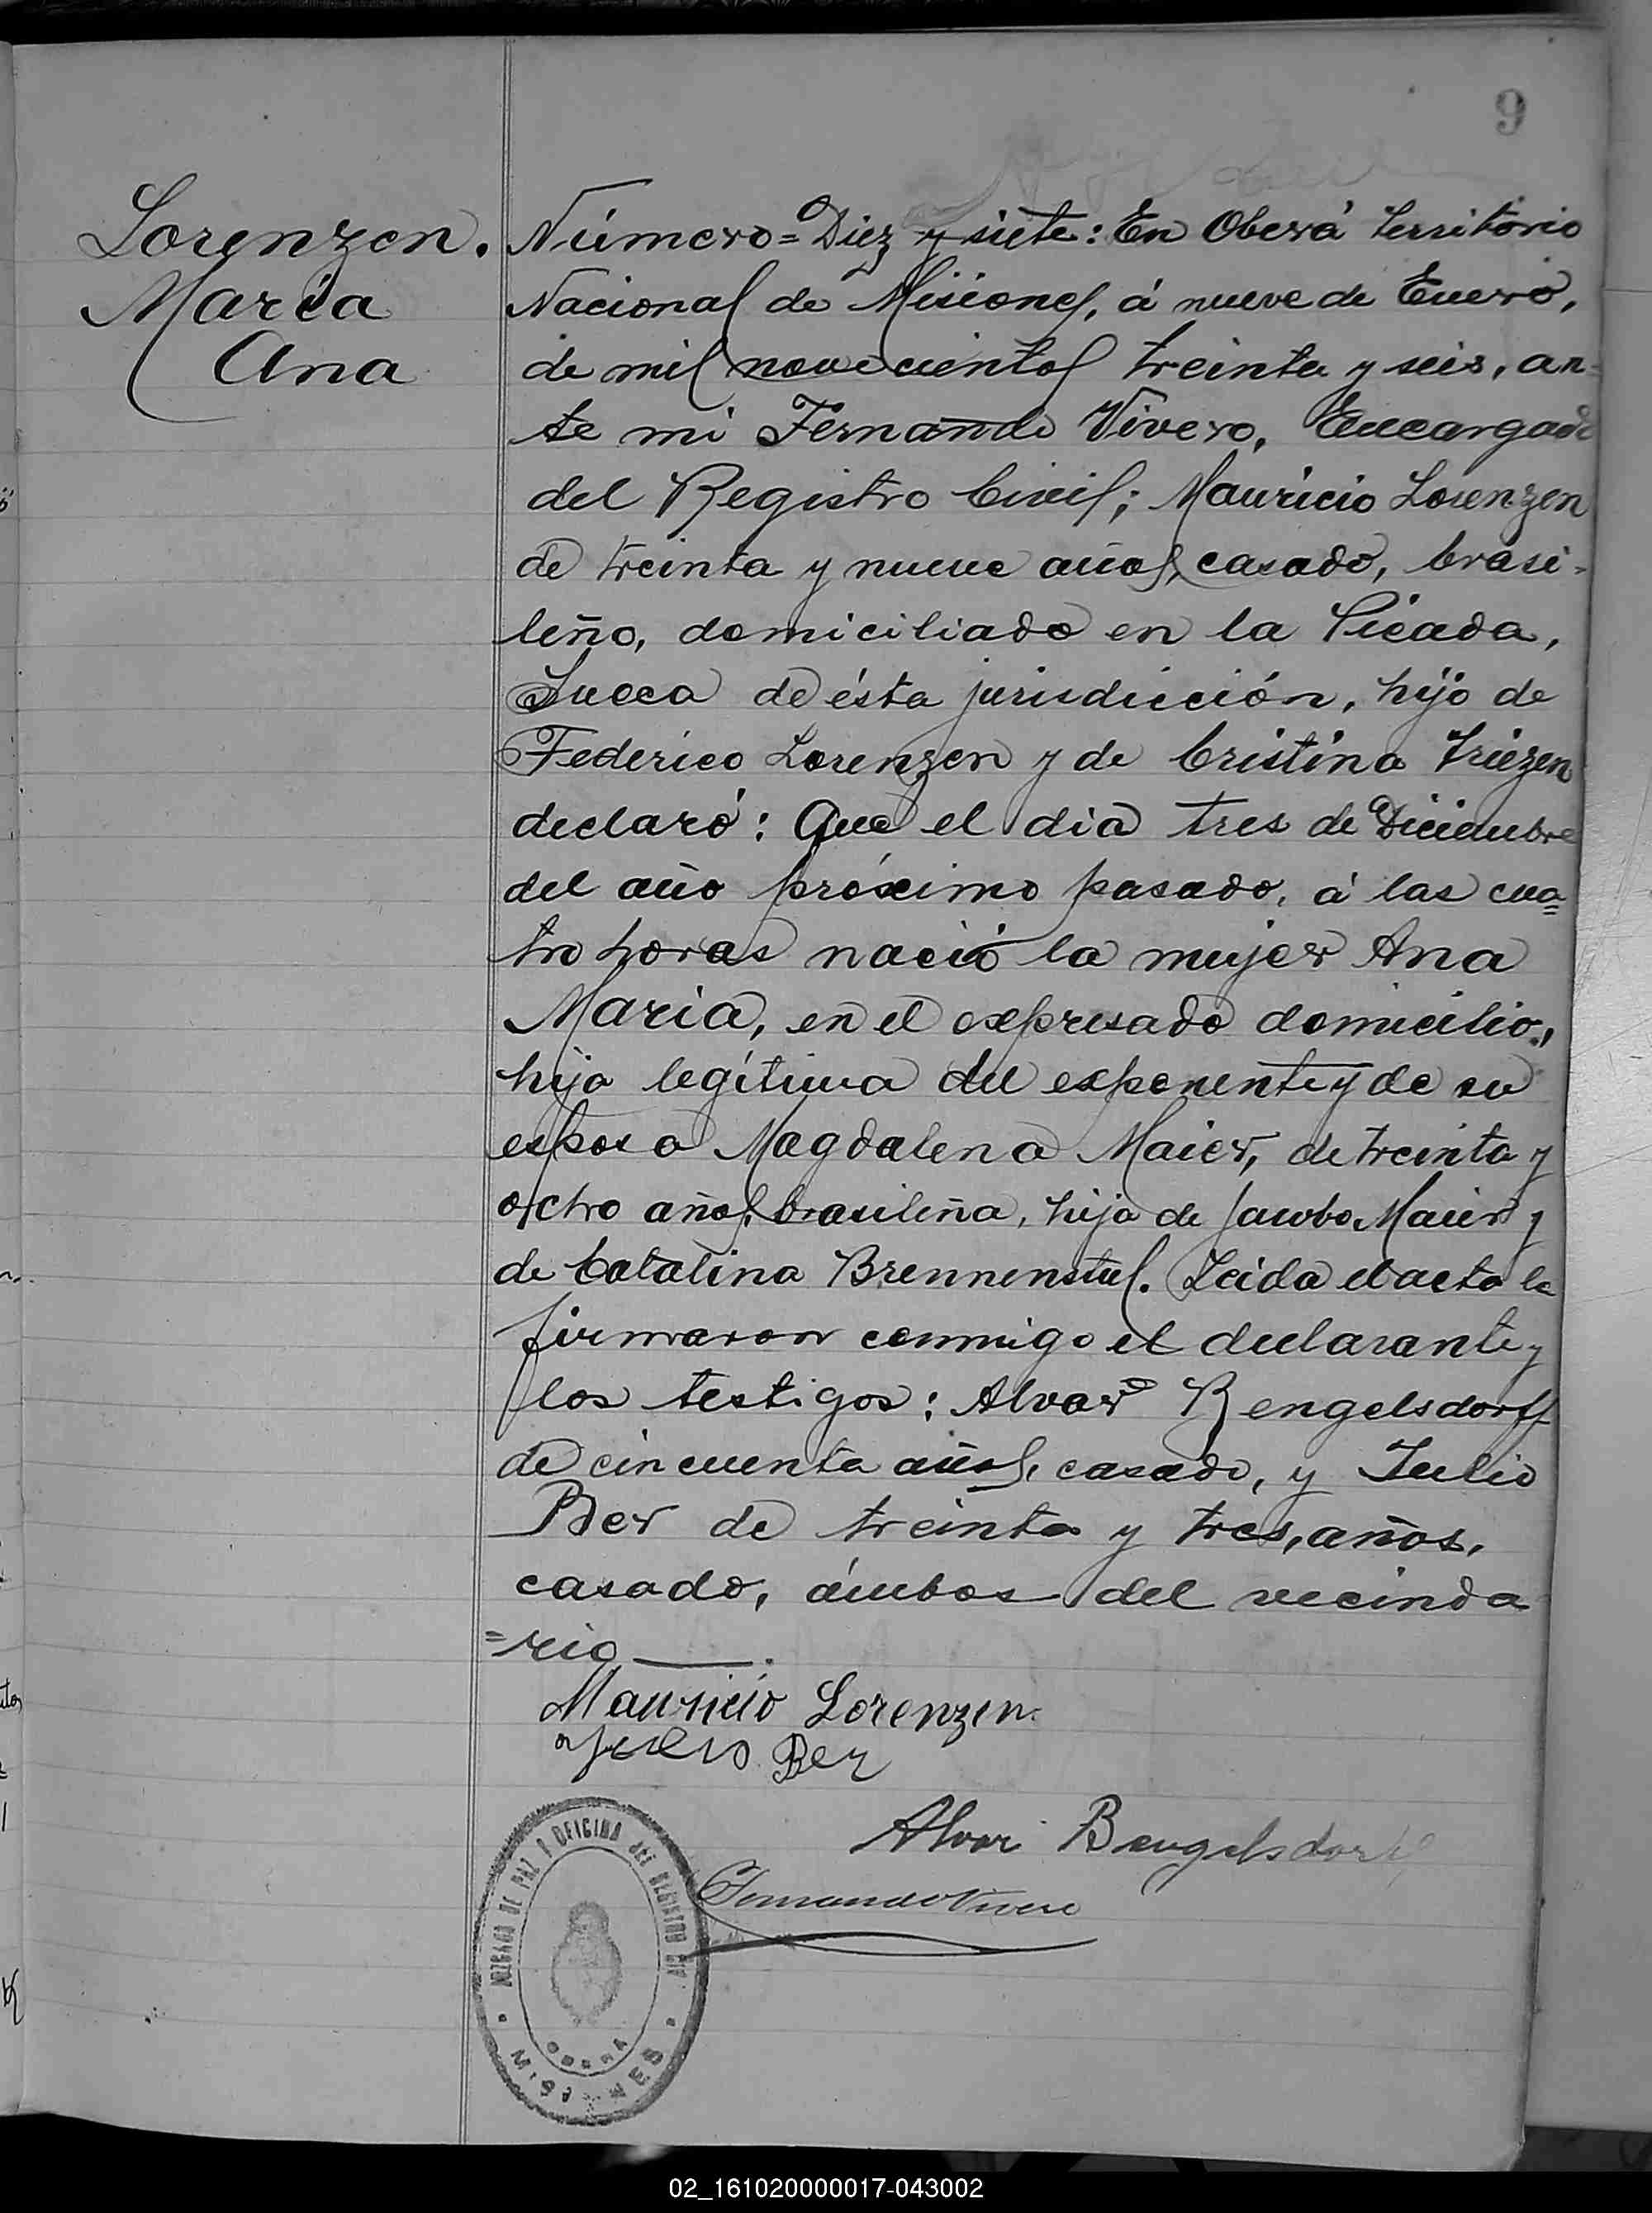 9
Lorenzen.
Maria
Ana
Número= Diez y siete: En Oberá territorio
Nacional de Misiones, á nueve de Enero,
de mil novecientos treinta y seis, an-
te mi Fernando Vivero, Encargado
del Registro Civil; Mauricio Lorenzen
de treinta y nueve años, casado, brasi-
leño, domiciliado en la Picada,
Sueca de ésta jurisdicción, hijo de
Federico Lorenzen y de Cristina Friezen
declaró: Que el dia tres de Diciembre
del año próximo pasado, á las cua=
tro horas nació la mujer Ana
Maria, en el expresado domicilio,
hija legítima del exponente y de su
esposa Magdalena Maier, de treinta y
ocho años, brasileña, hija de Jacobo Maier y
de Catalina Brennenstul. Leida el acta la
firmaron conmigo el declarante y
los testigos: Alvar Bengelsdorff
de cincuenta años, casado, y Julio
Ber de treinta y tres, años,
casado, ámbos del vecinda
=rio
Mauricio Lorenzen.
Julio Ber
Alvar Bengelsdorff
Fernando Vivero
JUZGADO DE PAZ Y OFICINA del REGISTRO CIVIL
OBERA
MISIONES
02_161020000017-043002